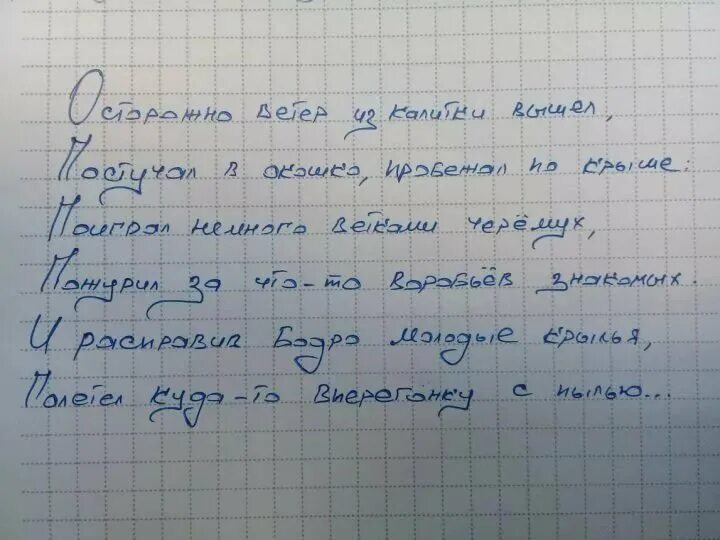 Осторожно ветер из калитки вышел,
Постучал в окошко, пробежал по крыше:
Поиграл немного ветками черёмух,
Пожурил за что-то воробьёв знакомых.
И расправив бодро молодые крылья,
Полетел куда-то вперегонку с пылью...